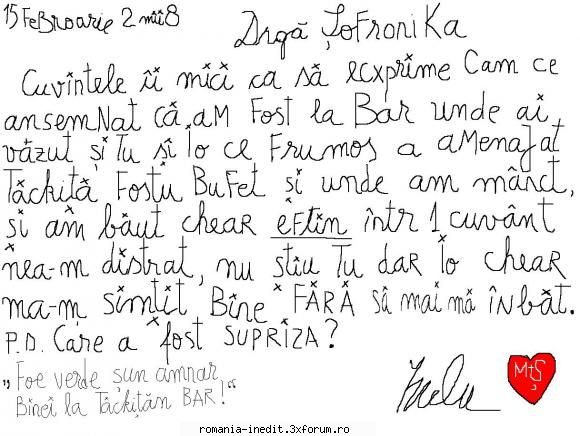 15 FeBroarie 2 mii8
Drgă ȘoFroniKa
Cuvintele îi mici ca să ecxprime Cam ce
ansemNat că aM Fost la Bar unde ai
văzut și Tu și Io ce Frumos a aMenaJat
Tăckiță Fostu BuFet și unde am mânct,
și am băut chear eftin într 1 cuvânt
nea-m distrat, nu știu Tu dar Io chear
ma-m simtit Bine FĂRĂ să mai mă înbăt.
P.D. Care a fost SUPRIZA?
„Foe verde șun amnar
Binei la Tăckițăn BAR!“
M+Ș
romania-inedit.3xforum.ro